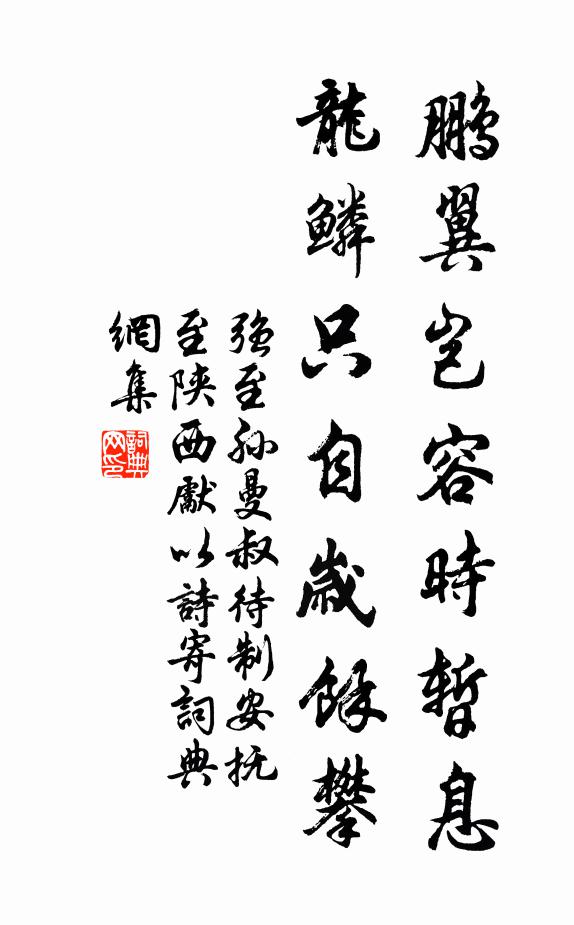 鵬翼豈容時暫息
龍鱗只自歲餘攀
強至孫曼叔待制安抚
至陝西獻以詩寄詞典
網集
詞典網印